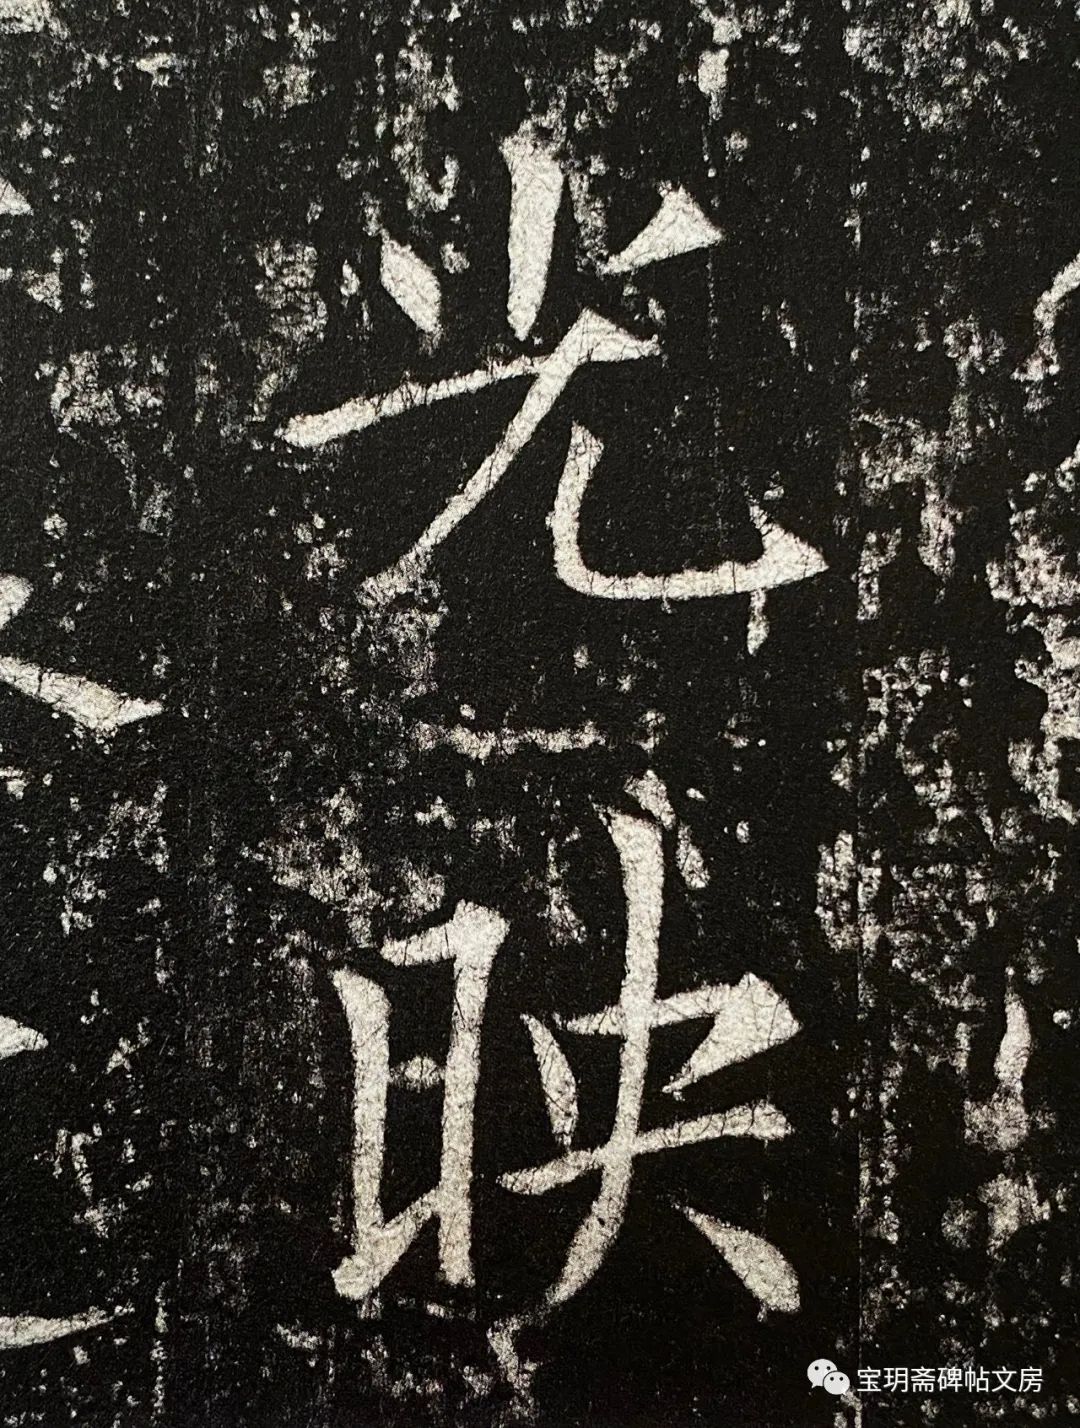 光
映
宝玥斋碑帖文房